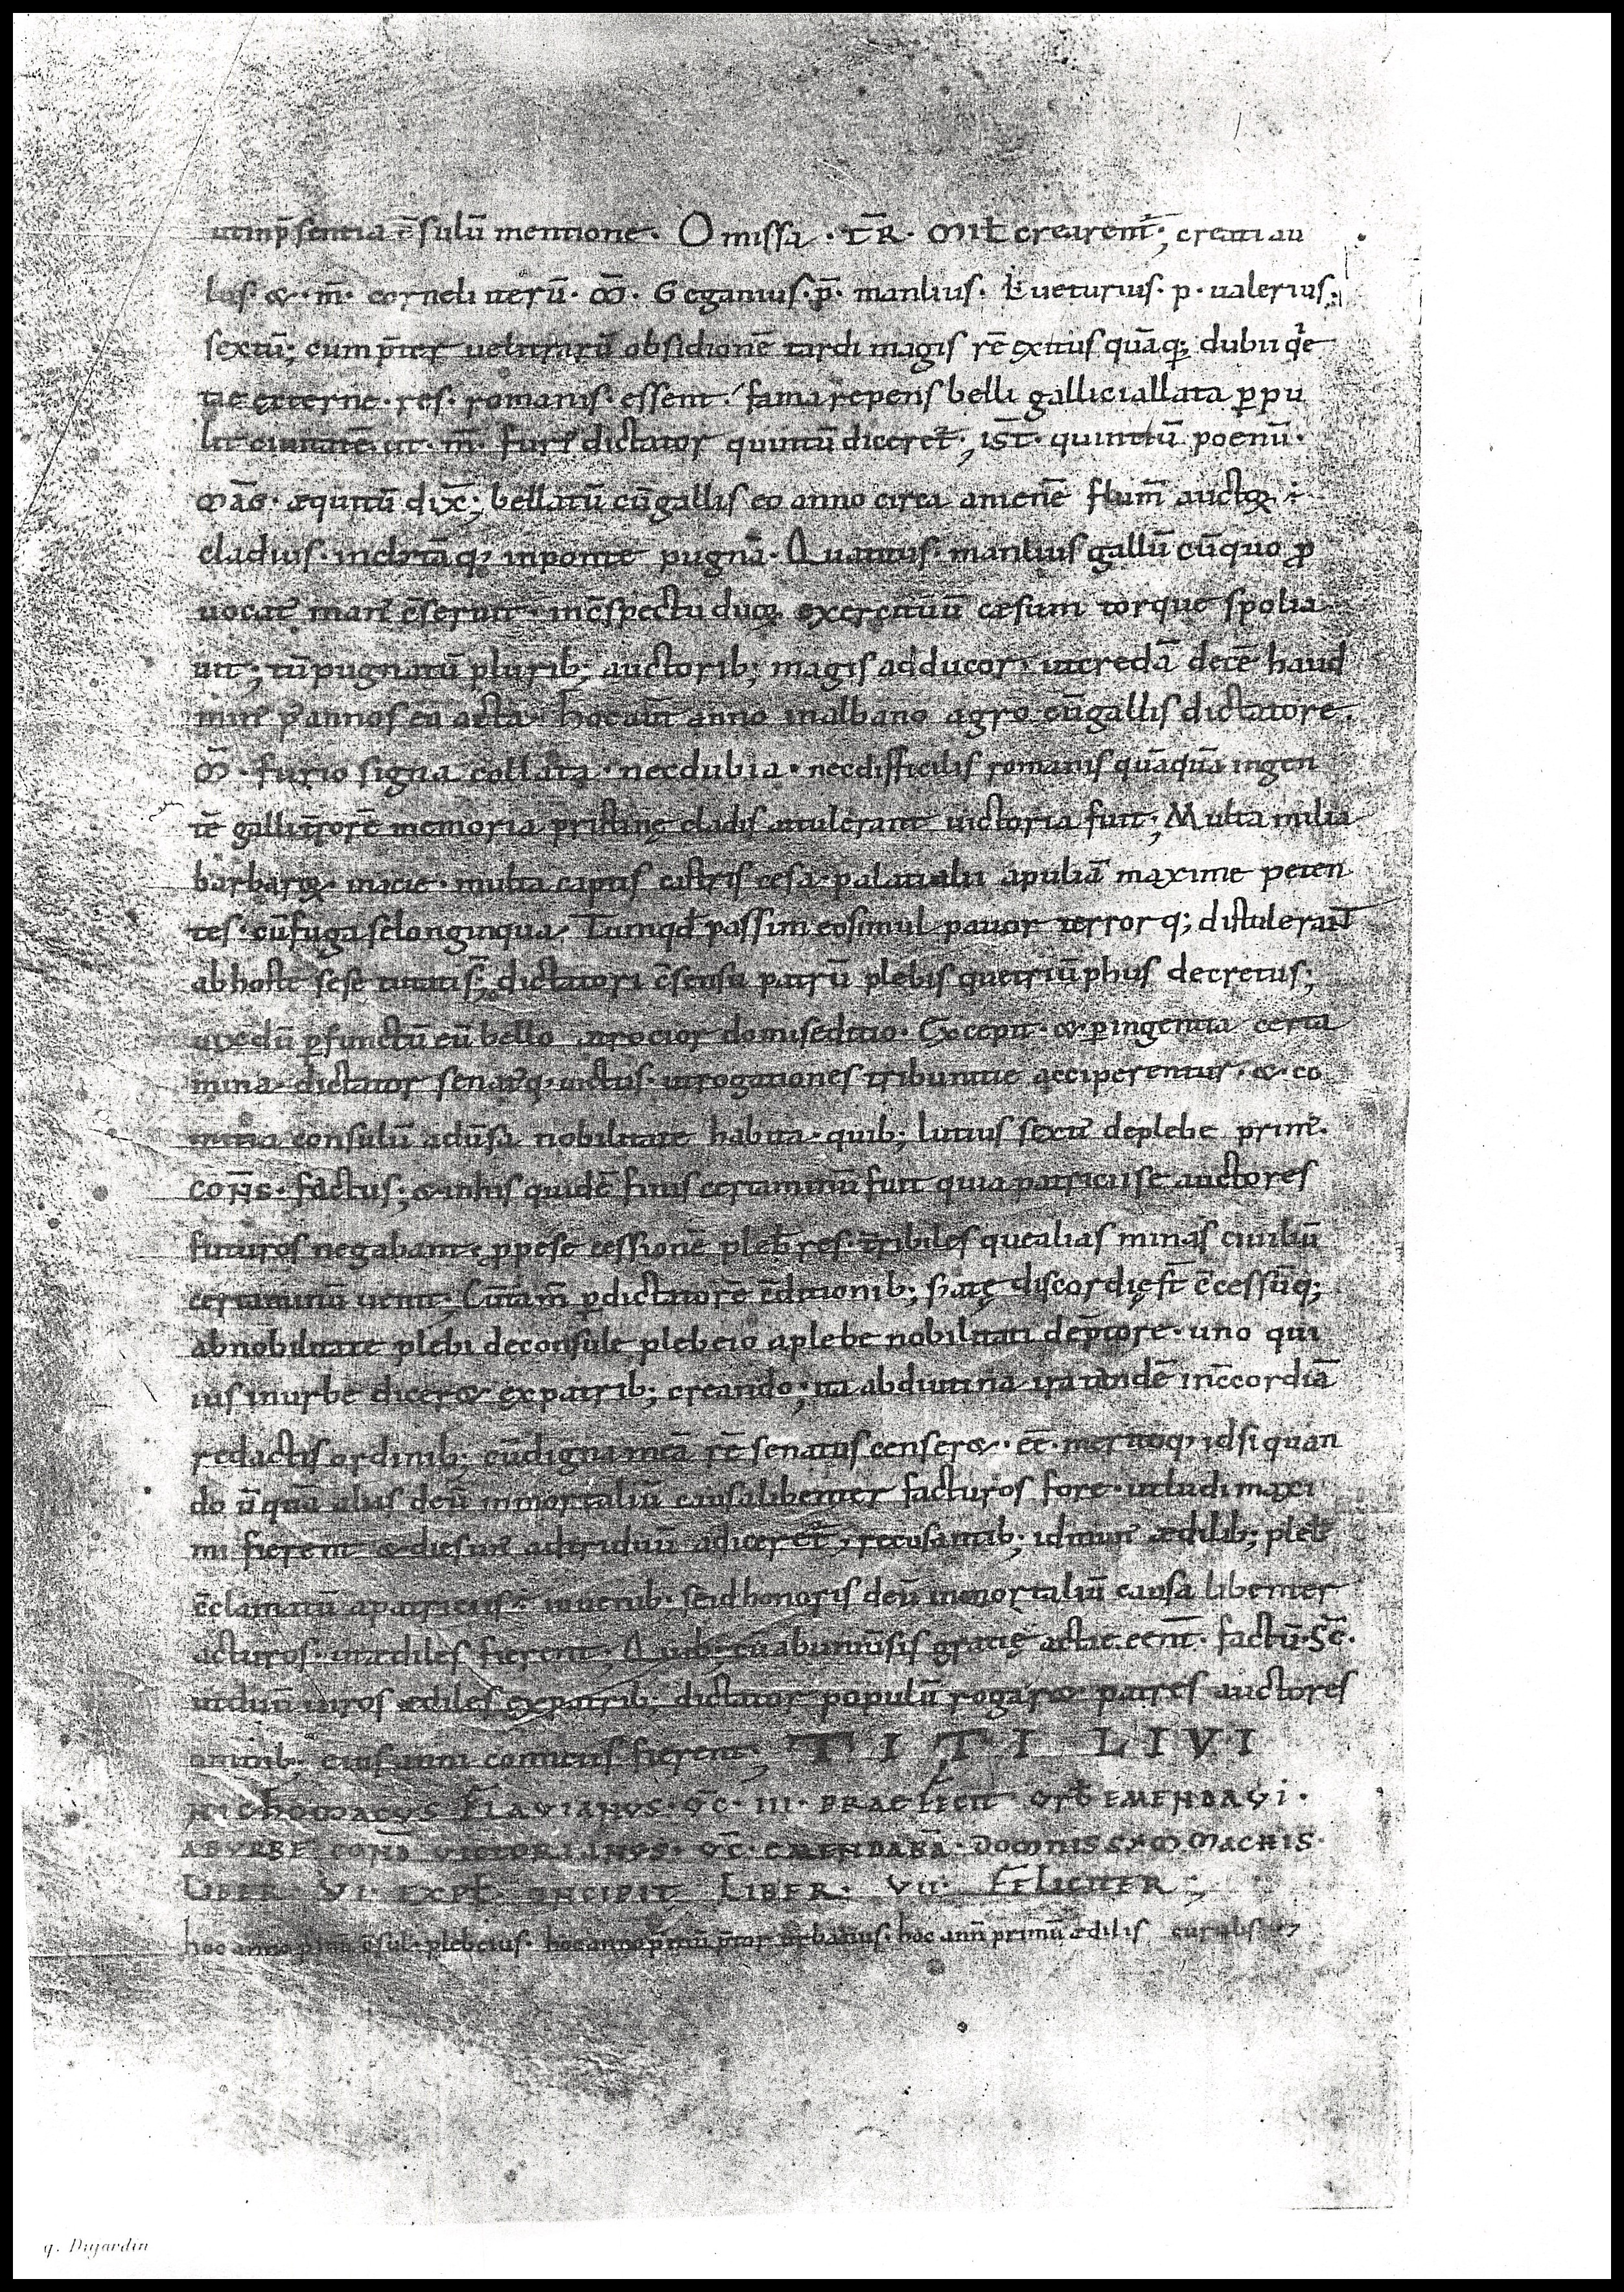 utinp̄sentia c̄sulū mentione. Omissa · T̄R · Mił crearent᷑; creati au
lus · & · m̄ · corneli iterū · M̄ · Geganius · p̄ · manlius · Ł ueturius · p · ualerius ·
sextū; cum p̄ter uelitrarū obsidionē tardi magis rē exitus quāq; dubii q̇e
tę externę · res · romanis · essent · fama repens belli gallici allata ꝑpu
lit ciuitatē · ut · m̄ · furi᷑ dictator quintū diceret᷑; is T̄ · quintiū poenū ·
māg · æquitū dix̄; bellatū cū gallis eo anno circa anienē flum̄ auctoꝝ ÷
cladius · inclitāq; inponte pugnā · Qua titus · manlius gallū cū quo ꝓ
uocat᷑ man᷑ c̄seruit · inc̄spectu duoꝝ exercituū cæsum torque spolia
uit; tū pugnatū plurib; auctorib; magis adducor · ut credā decē haud
min᷑ p᷑ annos ea acta · hoc aūt anno inalbano agro cū gallis dictatore ·
M̄ · furio signa collata · nec dubia · nec difficilis romanis quāquā ingen
tē galli t̄rorē memoria pristinę cladis attulerant uictoria fuit; Multa milia
barbaroꝝ · inacie · multa captis castris cesa · palati alii apuliā maxime peten
tes · cū fuga se longinqua · Tum qđ passim eos simul pauor terrorq; distulerant
ab hoste sese tutati s̄; dictatori c̄sensu patrū plebisque triūphus decretus;
uixdū ꝑfunctū eū bello atrocior domi seditio · Excepit · & ꝑ ingentia certa
mina · dictator senat᷑q; uictus · ut rogationes tribunitię acciperentur · & co
mitia consulū adu̅sa nobilitate habita · quib; lutius sextı᷑ de plebe prim᷑ ·
CON̄S · factus; & in his quidē finis certaminū fuit quia patricii se auctores
futuros negabant · ꝓpe se cessionē pleb̄ res · t̄ribiles que alias minas ciuiliū
certaminū uenit · Cū tam̄ ꝑ dictatorē c̄ditionib; s᷑atę discordię s̄t c̄cessūq;
ab nobilitate plebi de consule plebeio a plebe nobilitati de p̄tore · uno qui
ius inurbe dicer& ex patrib; creando; ita ab diutina ira tandē inc̄cordiā
redactis ordinib; cū digna m eā rē senatus censer& · ē · meritoq; id si quan
do ūquā alias deū inmortaliū causa libenter facturos fore · ut ludi maxi
mi fierent & dies un᷑ ad triduū adiceret᷑; recusantib; id mun᷑ ædilib; pleb̄
c̄clamatū a patriciis ÷ iuuenib; se id honoris deū inmortaliū causa libenter
acturos · ut ædiles fierent; Quib; cū ab uniu̅sis gratię actae eēnt · factū S̄C̄ ·
ut duū uiros ædiles ex patrib; dictator populū rogar& patres auctores
omnib; eius anni comitiis fierent; TITI LIVI
NICHOMACUS FLAVIANUS · V̄C · III · PRAEFECT᷑ URB̄ EMENDAVI ·
AB URBE COND̄ VICTORIANUS · V̄C · EMENDABĀ · DOMNIS SYMMACHIS ·
LIBER VI · EXPŁ INCIPIT LIBER · VII · FELICITER;
hoc anno primū c̄sul · plebeius · hoc anno primū p̄tor urbanus · hoc ann̄ primū ædilis curulis